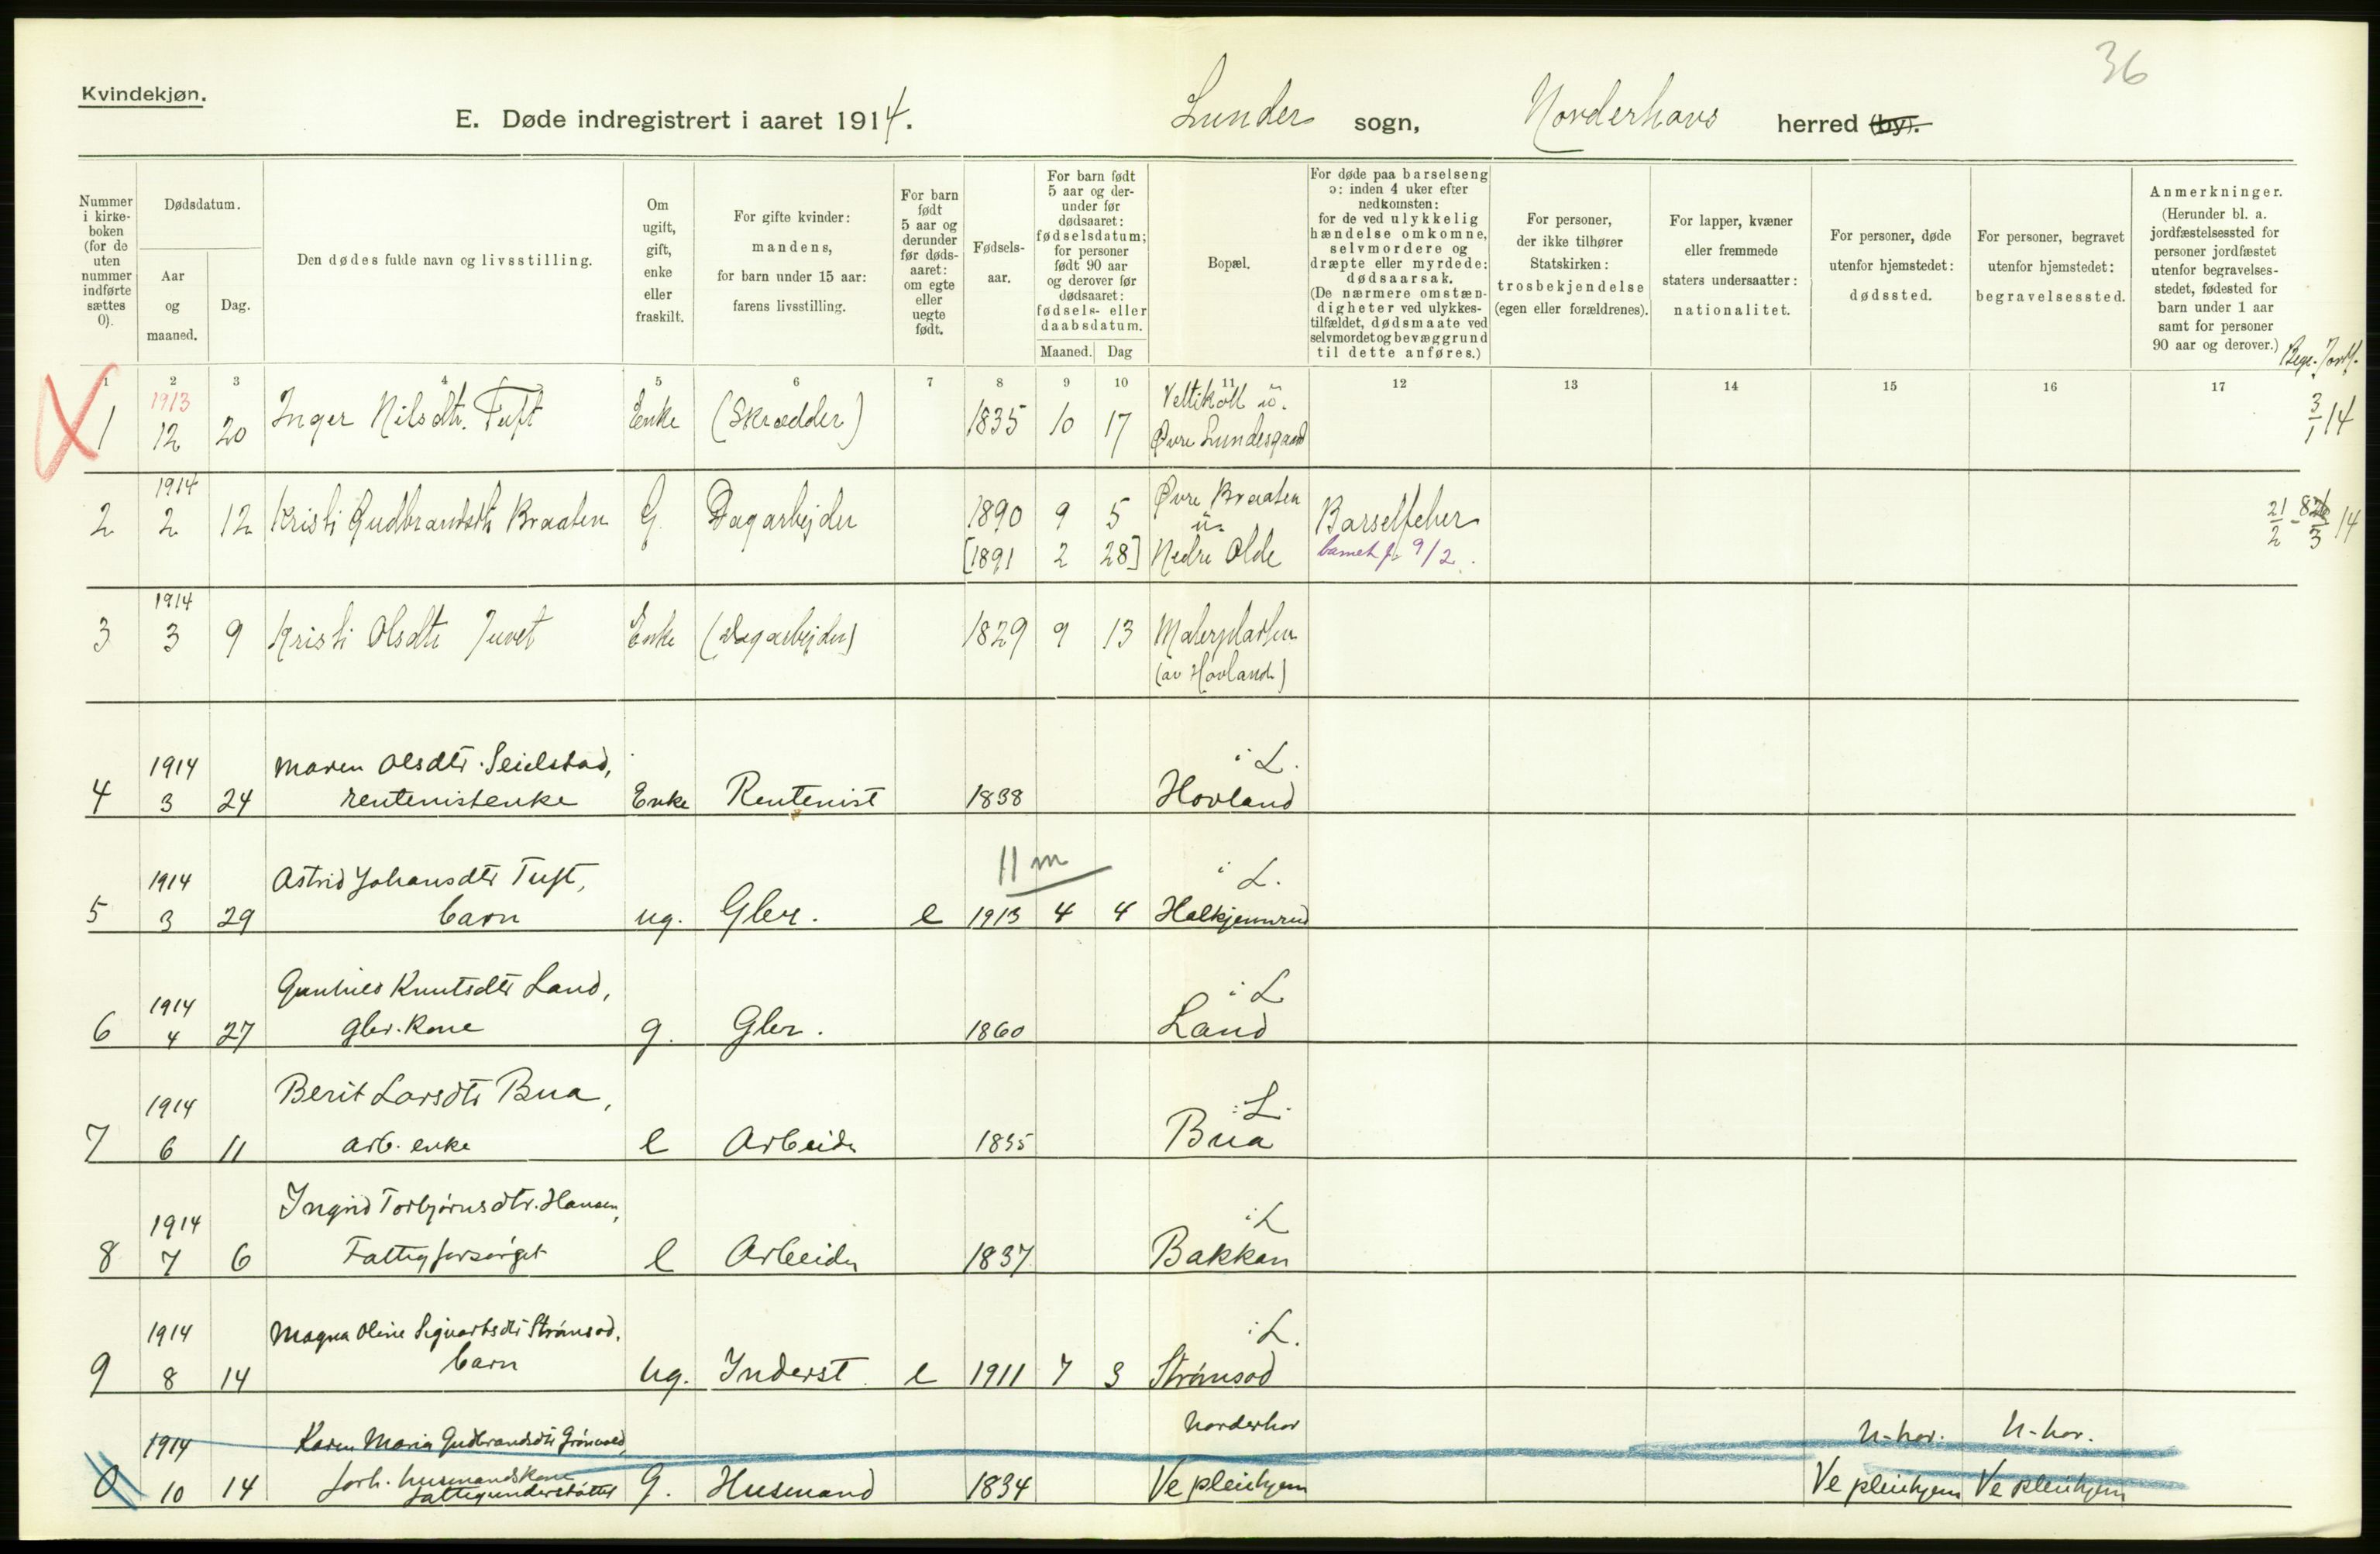 36
Kvindekjøn.
E. Døde indregistrert i aaret 1914. Lunder sogn, Norderhovs herred (by).
Nummer i kirkeboken (for de uten nummer indførte sættes 0).
Dødsdatum.
Aar og maaned.
Dag.
Den dødes fulde navn og livsstilling.
Om ugift, gift, enke eller fraskilt.
For gifte kvinder: mandens, for barn under 15 aar: farens livsstilling.
For barn født 5 aar og derunder før dødsaaret: om egte eller uegte født.
Fødselsaar.
For barn født 5 aar og derunder før dødsaaret: fødselsdatum; for personer født 90 aar og derover før dødsaaret: fødsels- eller daabsdatum.
Maaned. Dag
Bopæl.
For døde paa barselseng ɔ: inden 4 uker efter nedkomsten: for de ved ulykkelig hændelse omkomne, selvmordere og dræpte eller myrdede: dødsaarsak. (De nærmere omstændigheter ved ulykkestilfældet, dødsmaate ved selvmordet og bevæggrund til dette anføres.)
For personer, der ikke tilhører Statskirken: trosbekjendelse (egen eller forældrenes).
For lapper, kvæner eller fremmede staters undersaatter: nationalitet.
For personer, døde utenfor hjemstedet: dødssted.
For personer, begravet utenfor hjemstedet: begravelsessted.
Anmerkninger. (Herunder bl. a. jordfæstelsessted for personer jordfæstet utenfor begravelsesstedet, fødested for barn under 1 aar samt for personer 90 aar og derover.)
Begr. Jordf.
1 2 3 4 5 6 7 8 9 10 11 12 13 14 15 16 17
1 1913 12 20 Inger Nilsdtr. Tuft Enke (Skrædder) 1835 10 17 Veltikoll u. Øvre Lundesgaard 3/1 14
2 1914 2 12 Kristi Gudbrandsdtr Braaten G Dagarbejder 1890 9 5 Øvre Braaten u. Barselfeber 21/2 - 14
[1891 2 28] Nedre Olde barnet f. 9/2.
3 1914 3 9 Kristi Olsdtr Juvet Enke (Dagarbejder) 1829 9 13 Malerplassen
(av Hovland)
4 1914 3 24 Maren Olsdtr. Seielstad, rentenistenke Enke Rentenist 1838 Hovland i L.
11 m
5 1914 3 29 Astrid Johansdtr Tuft, barn ug. Gbr. e 1913 4 4 Halkjennrud i L.
6 1914 4 27 Gunhild Knutsdtr Land, gbr. kone g. Gbr. 1860 Land i L
7 1914 6 11 Berit Larsdtr Bua, arb. enke e Arbeider 1835 Bua i L.
8 1914 7 6 Ingrid Torbjørnsdtr. Hansen, Fattigforsørget e Arbeider 1837 Bakken i L
9 1914 8 14 Magna Oline Sigvartsdtr Strømsod, barn ug. Inderst e 1911 7 3 Strømsod i L.
0 1914 10 14 Karen Maria Gudbrandsdtr Grønvold, forh. husmandskone fattigunderstøttet G. Husmand 1834 Norderhov Ve pleiehjem N-hov. Ve pleiehjem N-hov. Ve pleiehjem